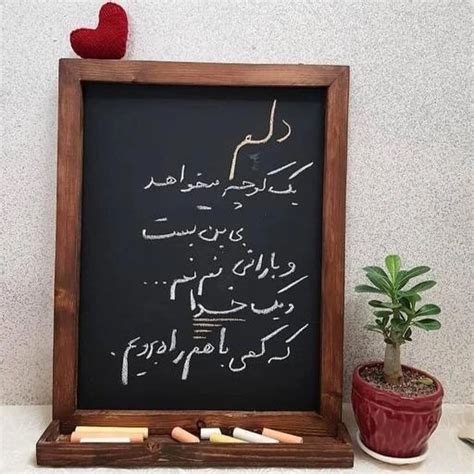 دلم
یک کوچه میخواهد
بی بن بست
و بارانی نم نم ...
و یک خدا
که کمی با هم راه برویم.